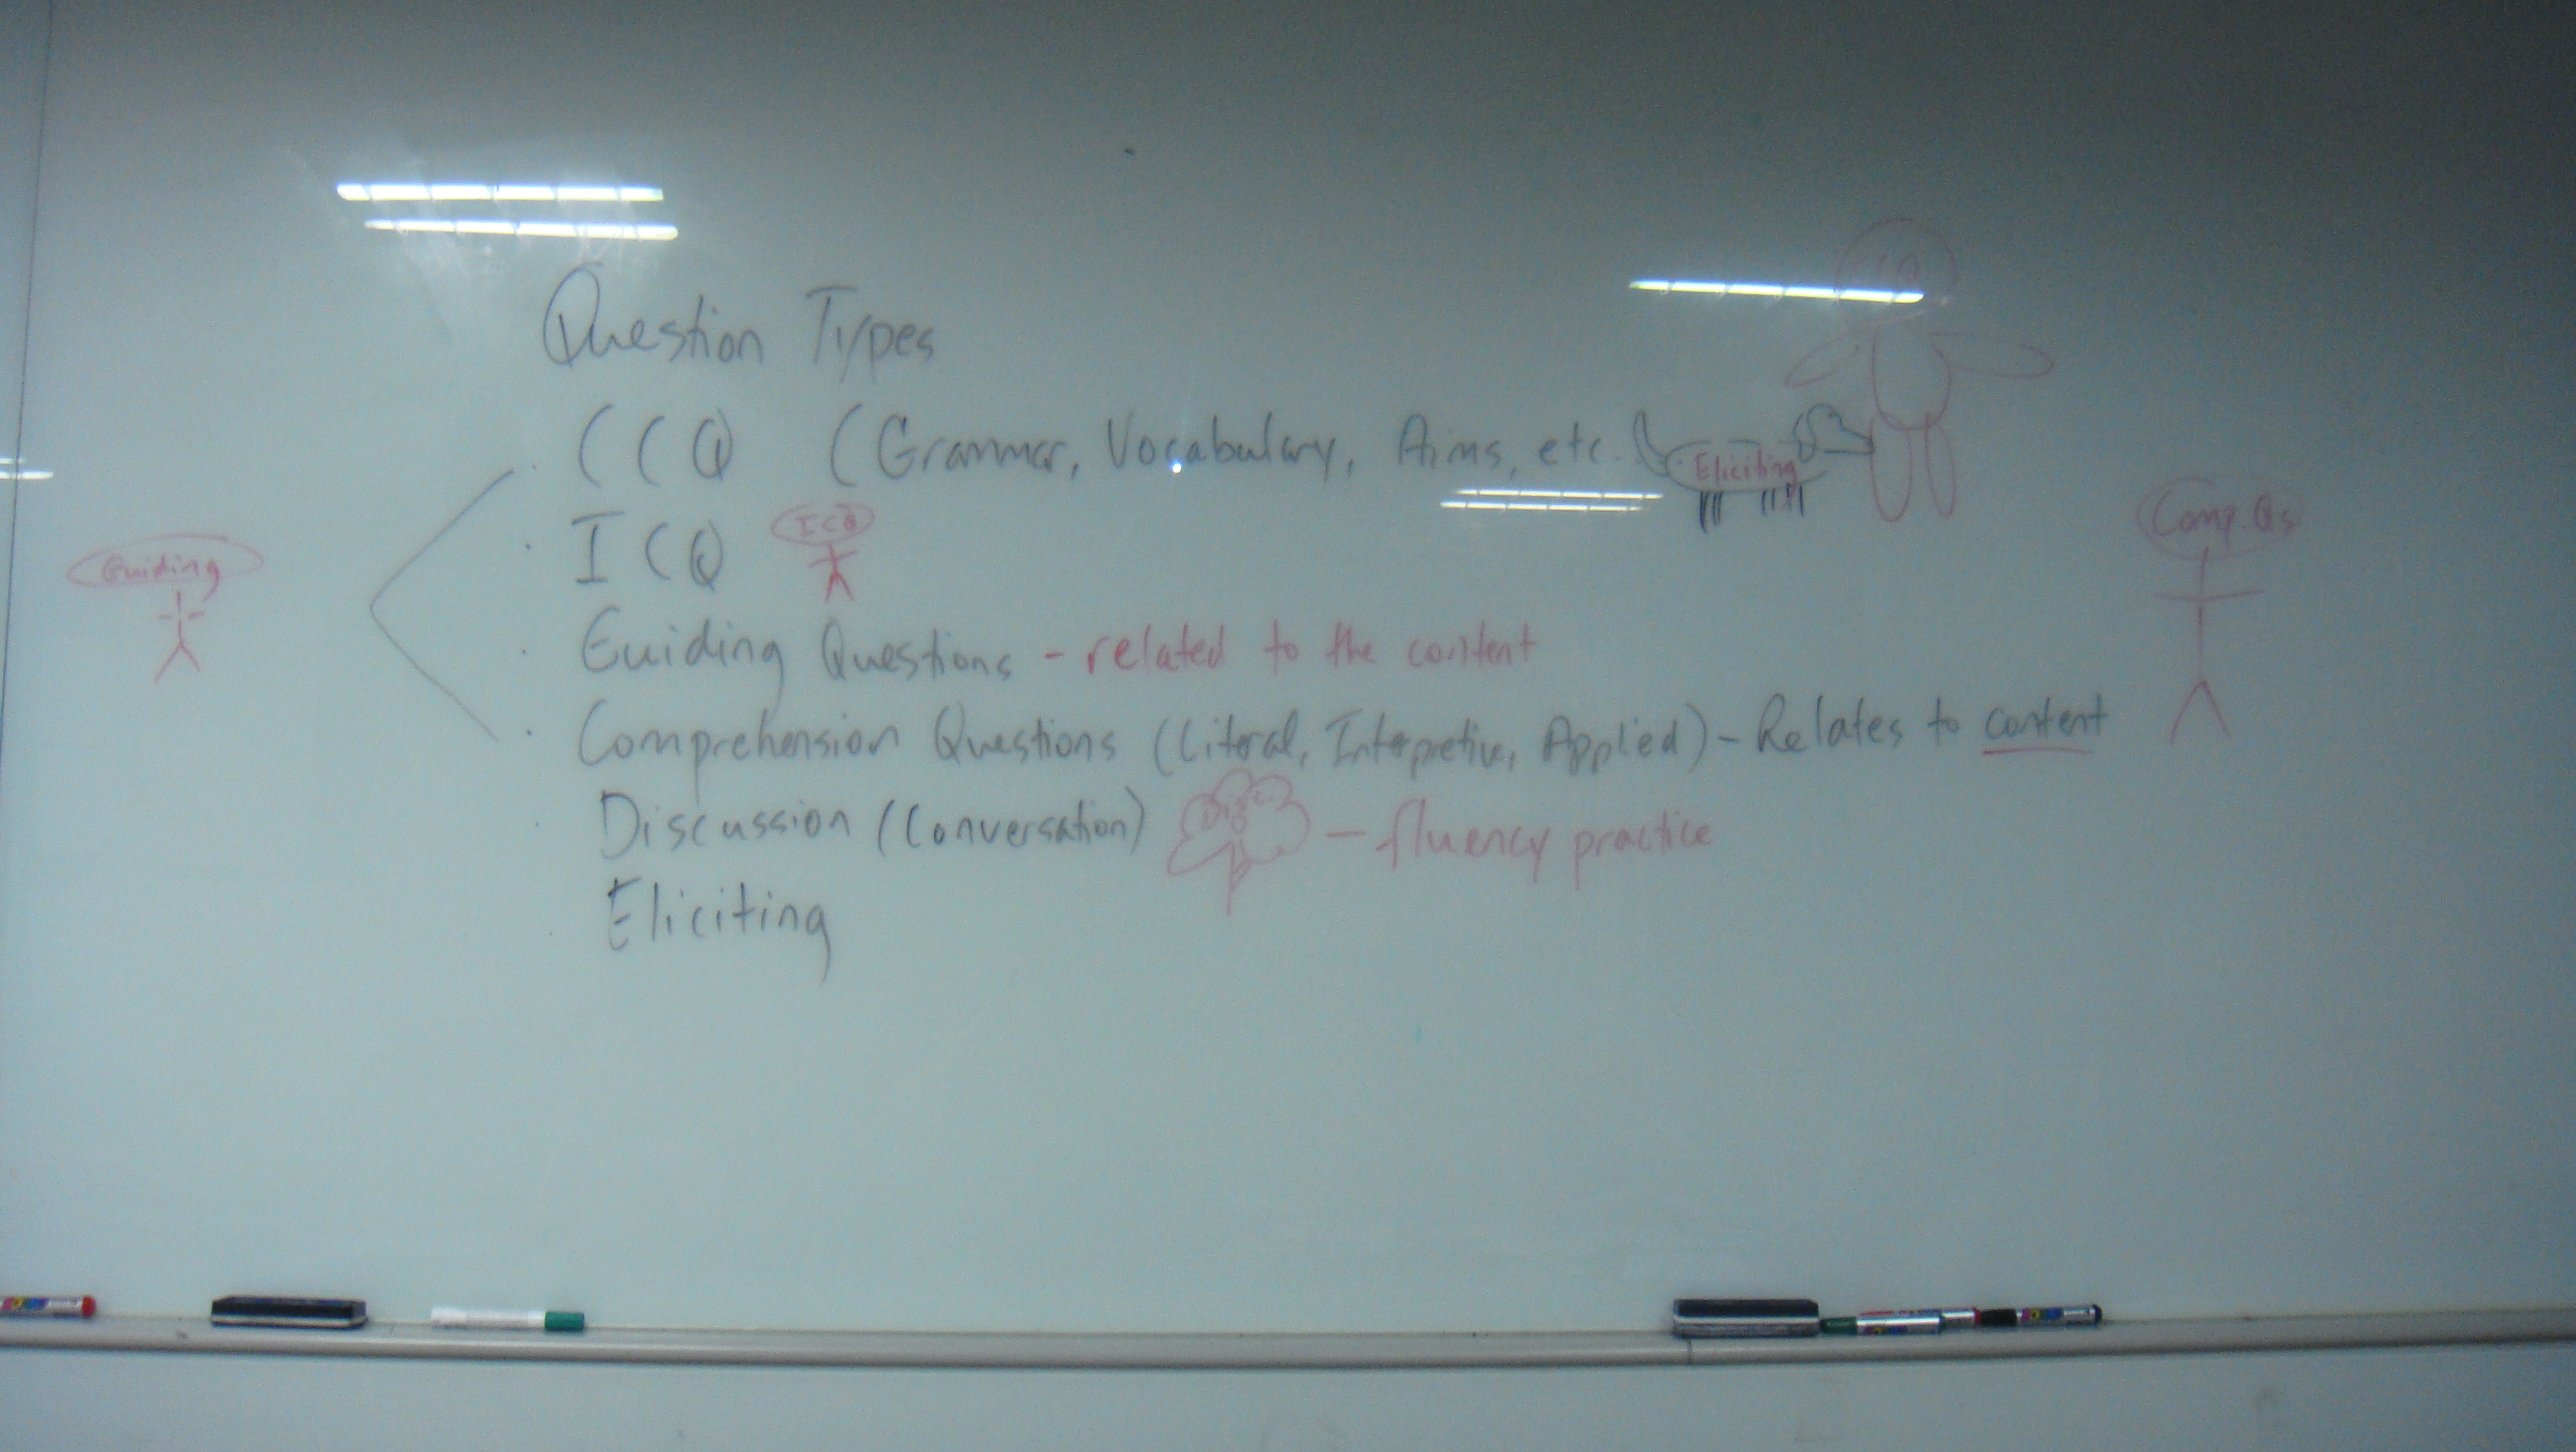 Question Types
· CCQ (Grammar, Vocabulary, Aims, etc.
Eliciting
· ICQ
ICQ
Guiding
Comp. Qs
· Guiding Questions - related to the content
· Comprehension Questions (Literal, Interpretive, Applied) - Relates to content
· Discussion (Conversation) Disc. - fluency practice
· Eliciting